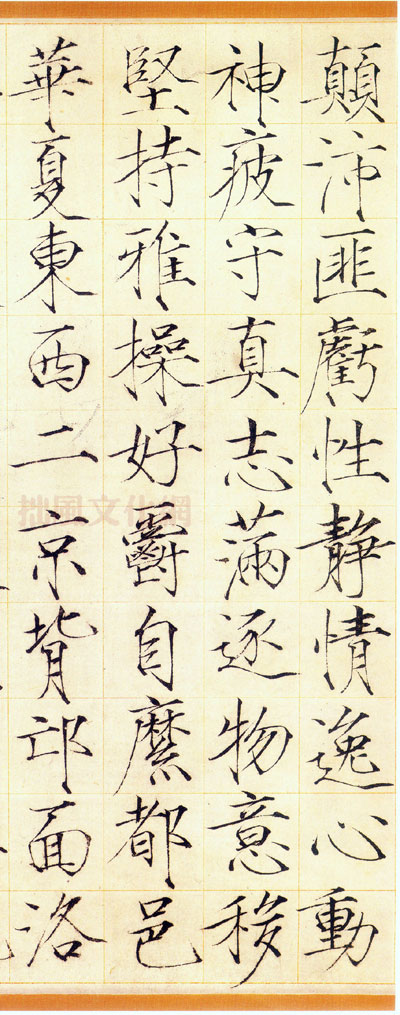 顛沛匪虧性静情逸心動
神疲守真志滿逐物意移
堅持雅操好爵自縻都邑
華夏東西二京背邙面洛
拙風文化網